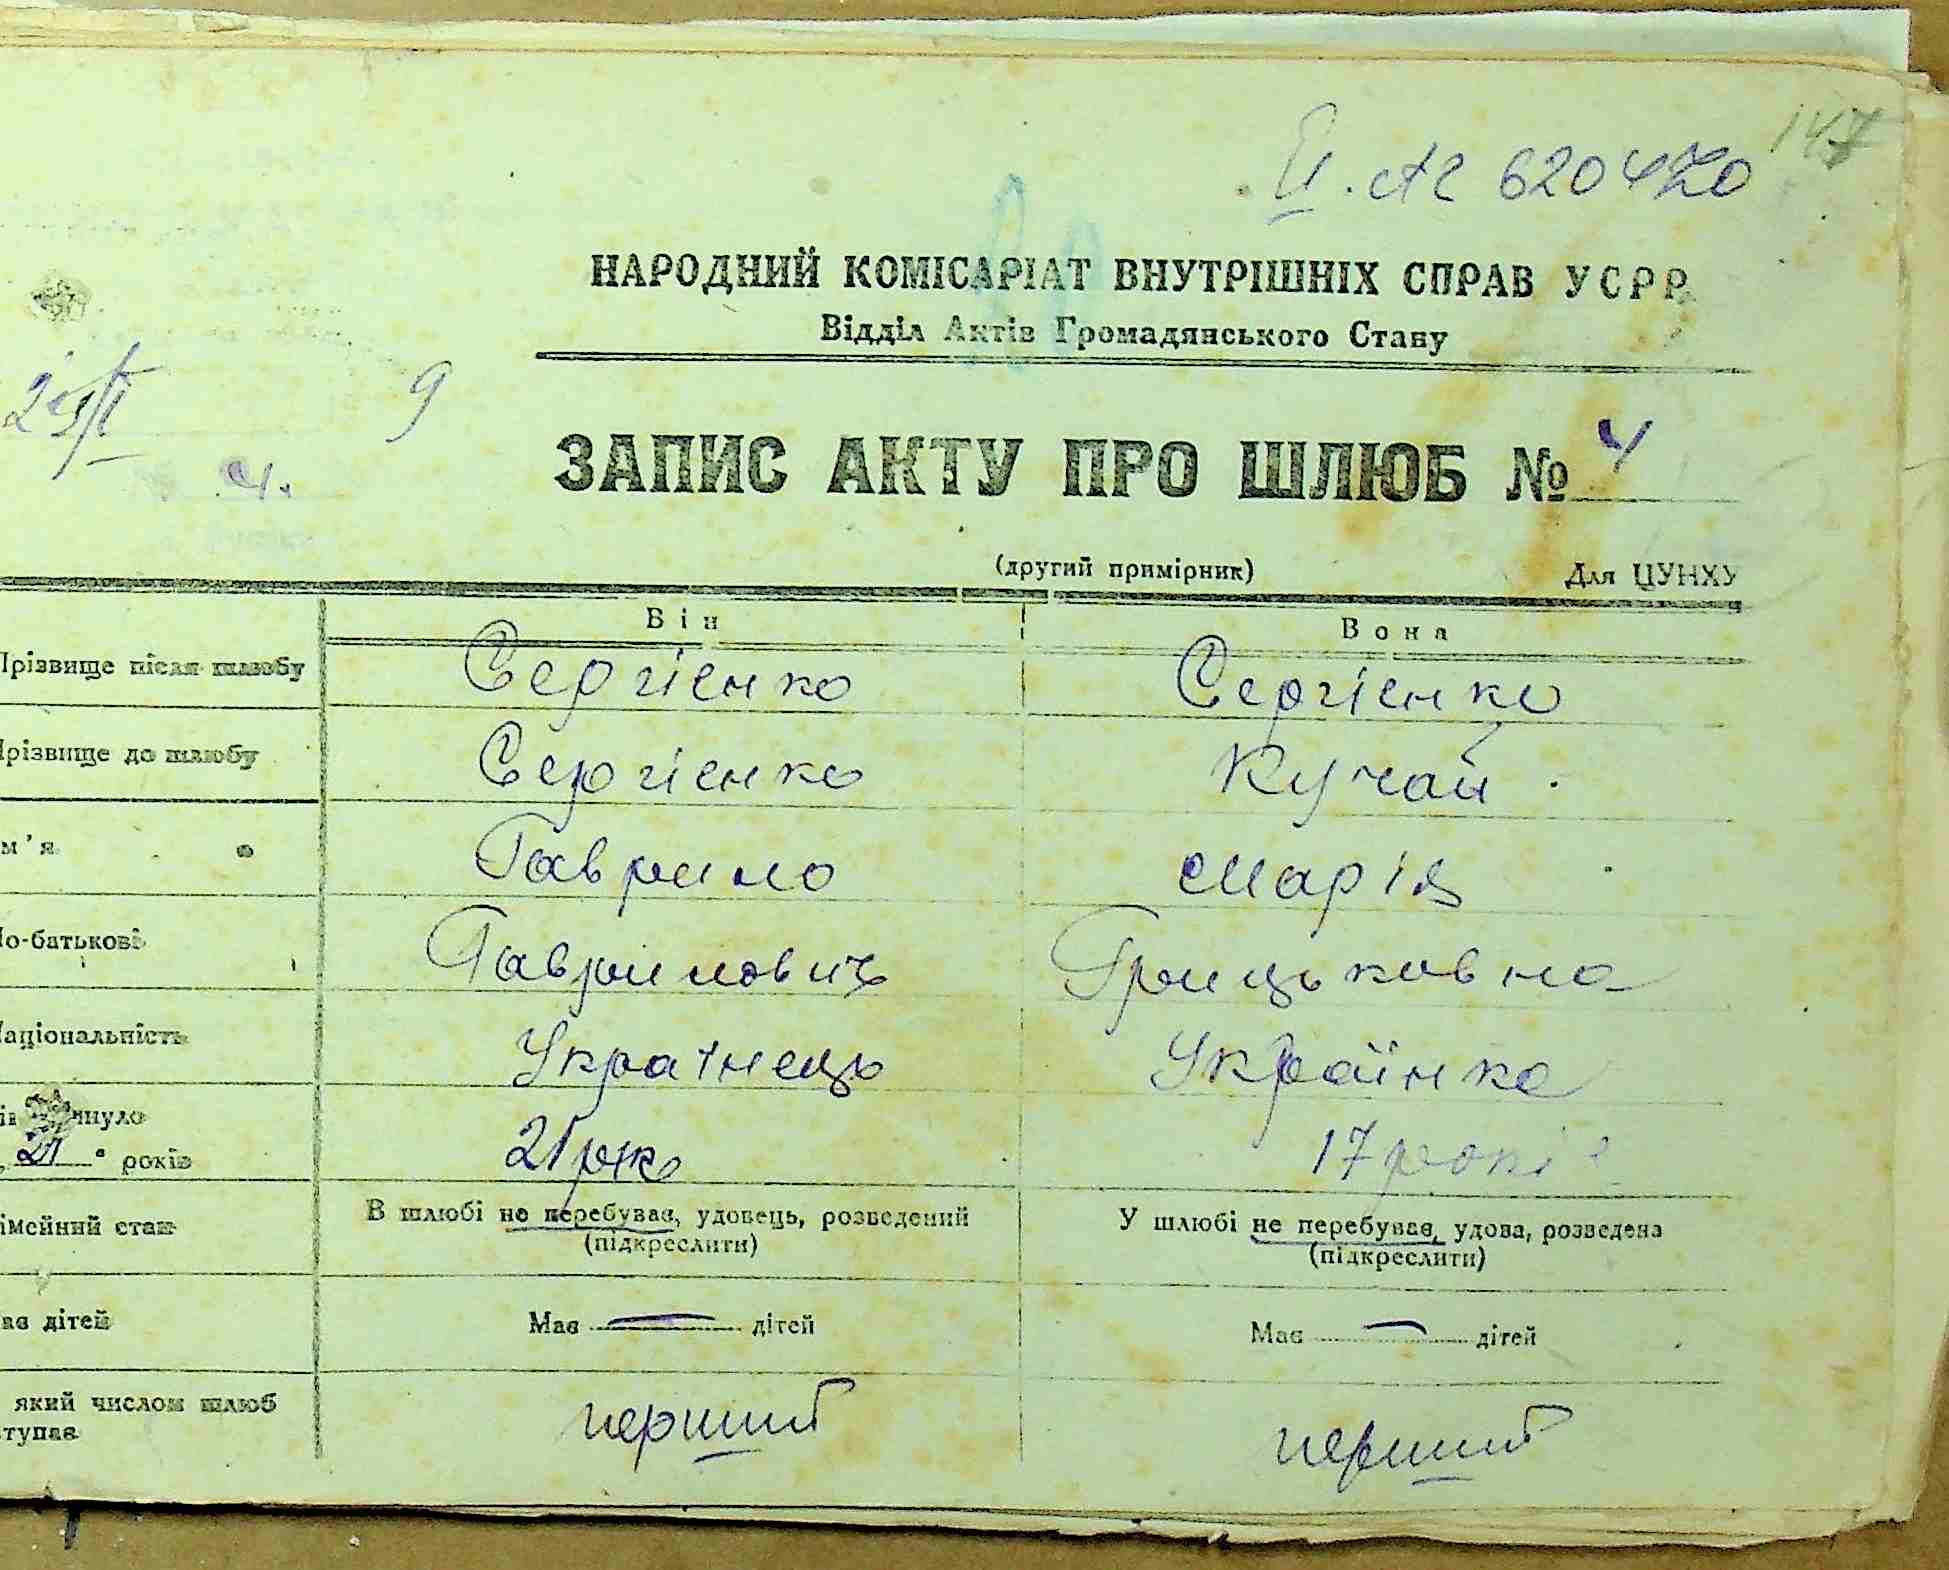 147
№ 620420
НАРОДНИЙ КОМІСАРІАТ ВНУТРІШНІХ СПРАВ УСРР
Відділ Актів Громадянського Стану
9
ч.
ЗАПИС АКТУ ПРО ШЛЮБ № 4
(другий примірник) Для ЦУНХУ
Він Вона
Прізвище після шлюбу Сергієнко Сергієнко
Прізвище до шлюбу Сергієнко Кучай
м'я Гаврило Марія
По-батькові Гаврилович Грицьковна
Національність Українець Українка
минуло
21 років 21 рік 17 років
імейний стан В шлюбі не перебував, удовець, розведений У шлюбі не перебував, удова, розведена
(підкреслити) (підкреслити)
ає дітей Має — дітей Має — дітей
який числом шлюб
ступає перший перший